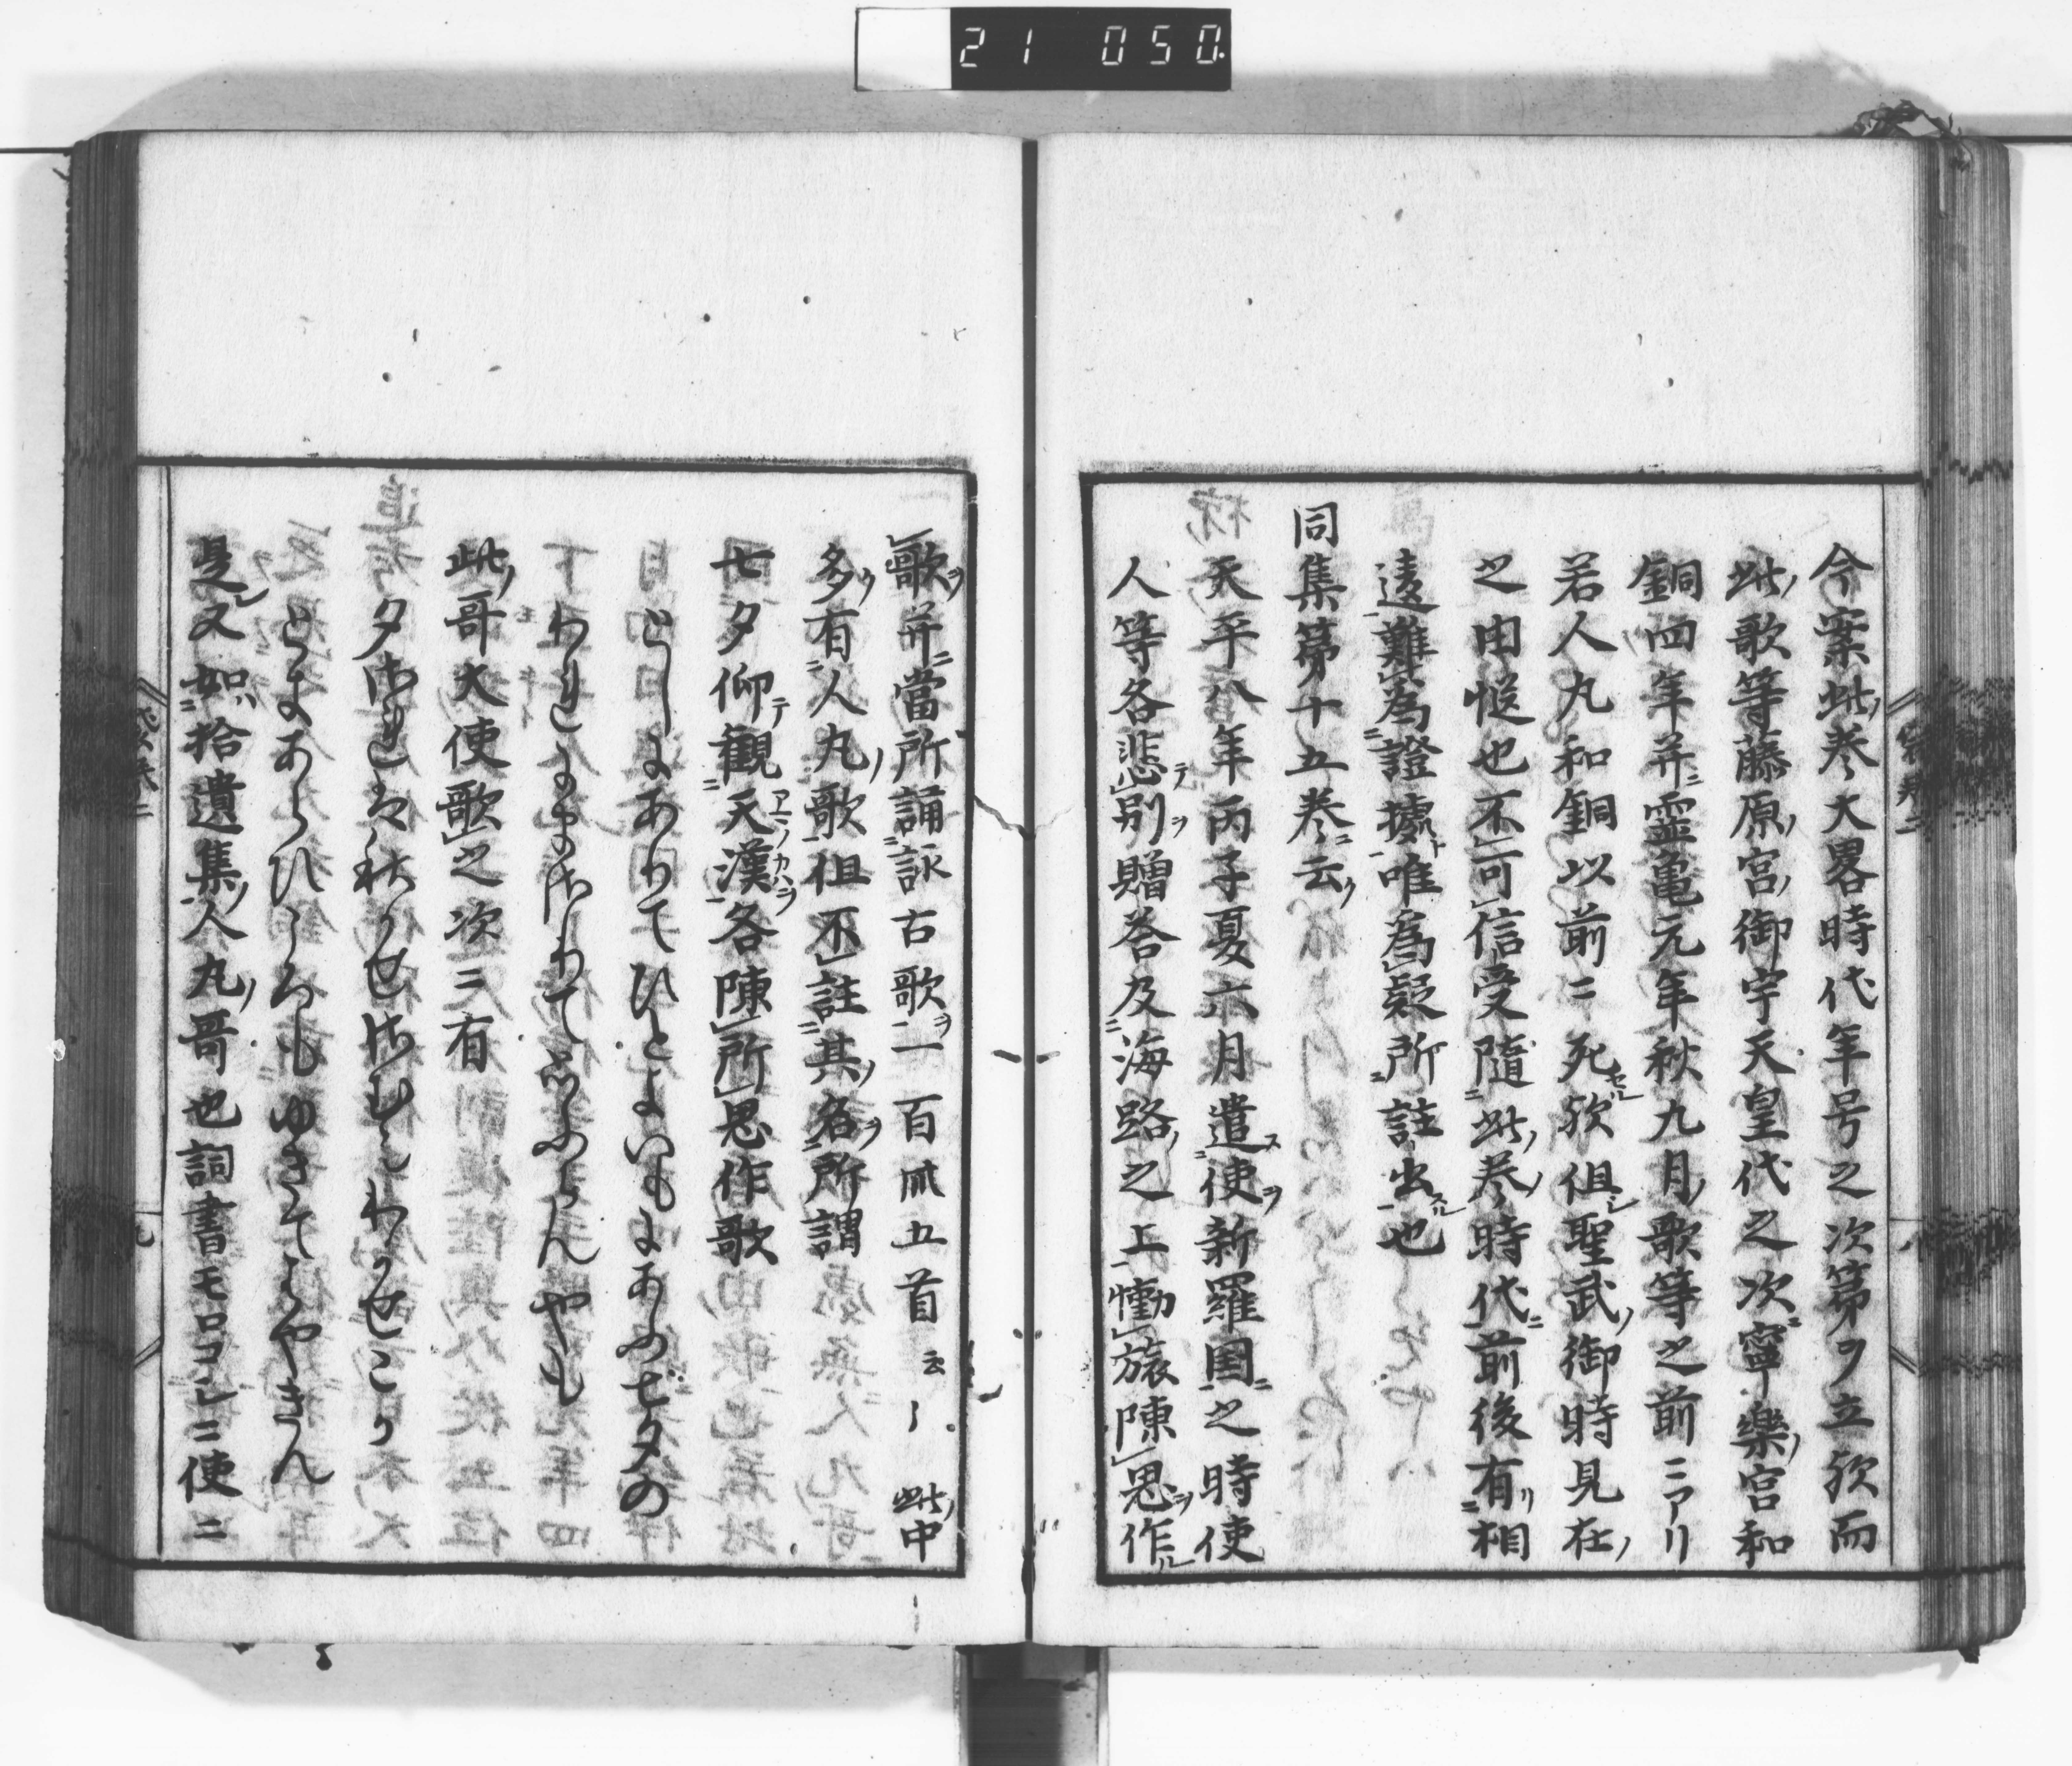 21 050
今案此巻大畧時代年号之次第ヲ立欤而
此歌等藤原宮御宇天皇代之次寧樂宮和
銅四年并霊亀元年秋九月歌等之前ニアリ
若人丸和銅以前ニ死欤但聖武御時見在
之由慥也不可信受隨此巻時代前後有相
違難為證據唯為疑所註出也
同集第十五巻云
天平八年丙子夏六月遣使新羅国之時使
人等各悲別贈答及海路之上慟旅陳思作
歌并當所誦詠古歌一百卌五首云〻此中
多有人丸歌但不註其名所謂
七夕仰観天漢各陳所思作歌
としにありてひとよいもにあふ七夕の
われにまさりて思ふらんやも
此哥大使歌之次ニ有
夕されは秋かせさむしわきせこか
ときあらひころもゆきてはやきん
是又如拾遺集人丸哥也詞書モロコシニ使ニ